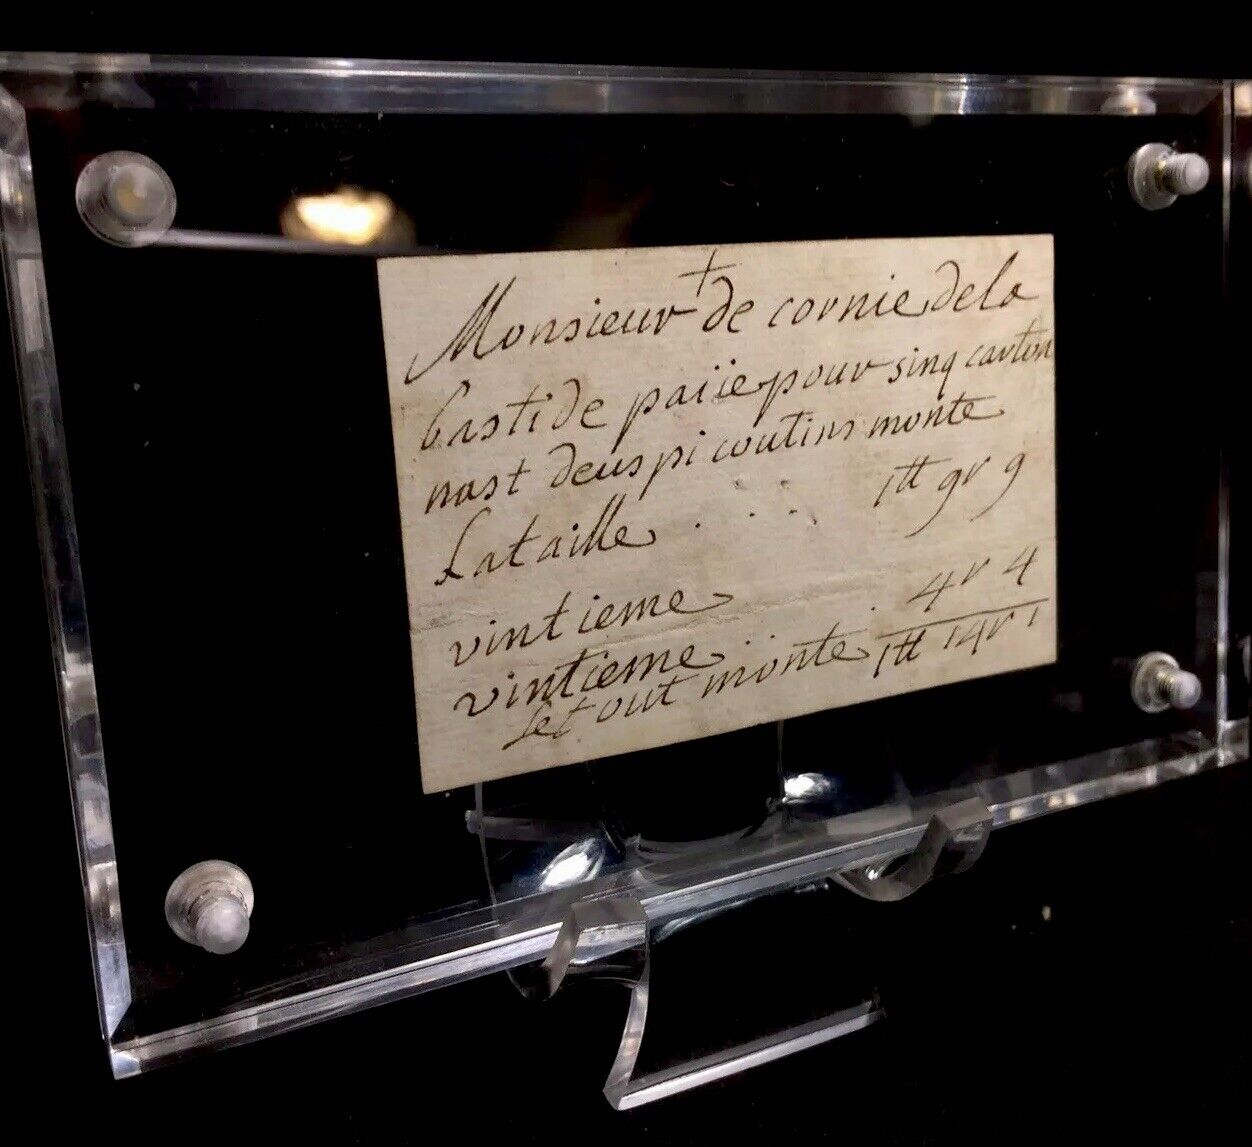 Monsieur de cornie dela
bastide païie pour sinq carton
nast deus pi coutins monte
Lataille . . . . 1tt 9r 9
vintieme
4r 4
vintieme . . .
Let out monte 1tt 14r 1